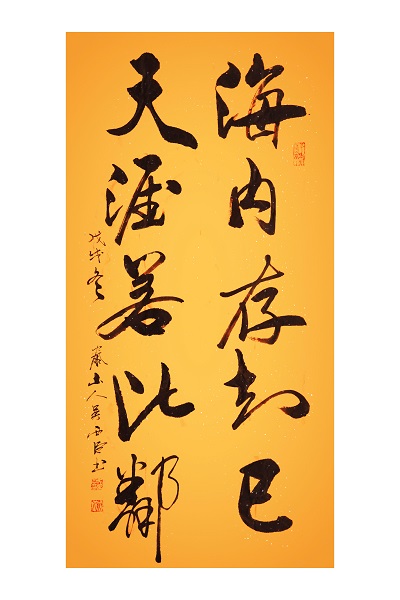 海内存知己
天涯若比鄰
戊戌冬 山人吳書